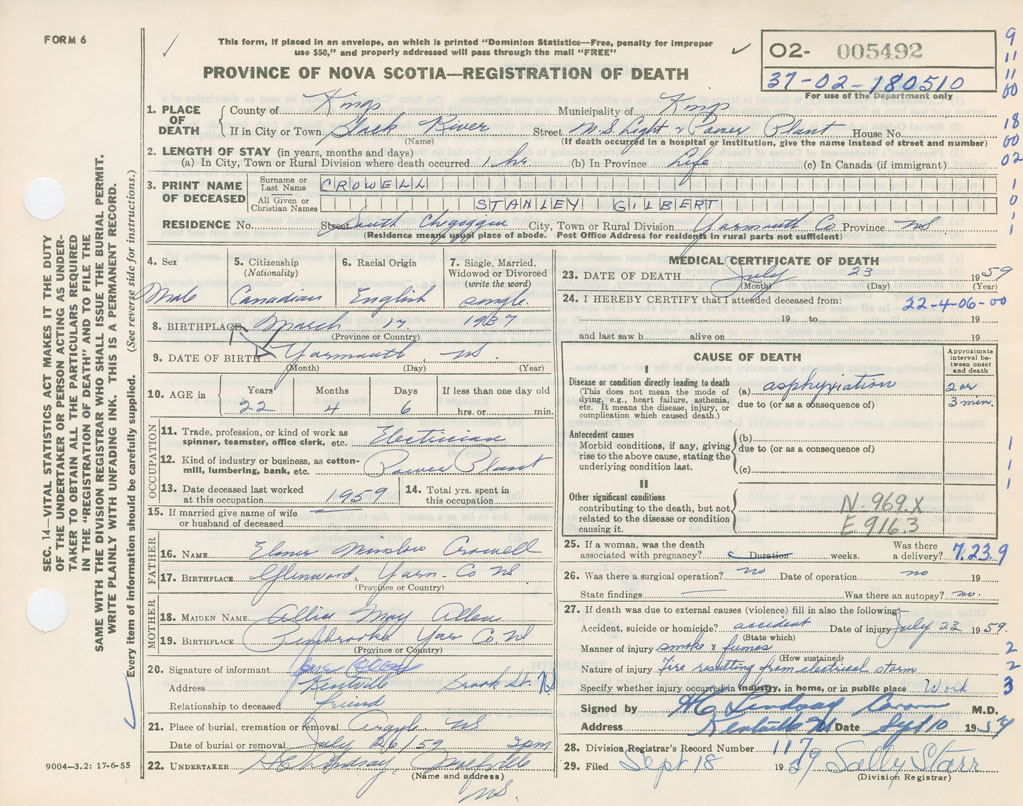 FORM 6
This form, if placed in an envelope, on which is printed "Dominion Statistics—Free, penalty for improper
use $50," and properly addressed will pass through the mail "FREE"
O2- 005492
37-02-180510
For use of the Department only
PROVINCE OF NOVA SCOTIA—REGISTRATION OF DEATH
9
11
11
00
18
00
02
1
0
1
SEC. 14—VITAL STATISTICS ACT MAKES IT THE DUTY
OF THE UNDERTAKER OR PERSON ACTING AS UNDER-
TAKER TO OBTAIN ALL THE PARTICULARS REQUIRED
IN THE "REGISTRATION OF DEATH" AND TO FILE THE
SAME WITH THE DIVISION REGISTRAR WHO SHALL ISSUE THE BURIAL PERMIT.
WRITE PLAINLY WITH UNFADING INK. THIS IS A PERMANENT RECORD.
Every item of information should be carefully supplied. (See reverse side for instructions.)
1. PLACE OF DEATH
County of Kings Municipality of Kings
If in City or Town Black River Street N.S. Light & Power Plant House No.
(Name) (If death occurred in a hospital or institution, give the name instead of street and number)
2. LENGTH OF STAY (in years, months and days)
(a) In City, Town or Rural Division where death occurred 1 hr (b) In Province Life (c) In Canada (if immigrant)
3. PRINT NAME OF DECEASED
Surname or Last Name CROWELL
All Given or Christian Names STANLEY GILBERT
RESIDENCE No. Street South City, Town or Rural Division Yarmouth Co Province NS
(Residence means usual place of abode. Post Office Address for residents in rural parts not sufficient)
4. Sex
Male
5. Citizenship
(Nationality)
Canadian
6. Racial Origin
English
7. Single, Married,
Widowed or Divorced
(write the word)
single
8. BIRTHPLACE March 17 1937
(Province or Country)
9. DATE OF BIRTH Yarmouth, NS.
(Month) (Day) (Year)
10. AGE in
Years Months Days If less than one day old
22 4 6 hrs. or min.
OCCUPATION
11. Trade, profession, or kind of work as
spinner, teamster, office clerk, etc. Electrician
12. Kind of industry or business, as cotton-
mill, lumbering, bank, etc. Power Plant
13. Date deceased last worked
at this occupation 1959
14. Total yrs. spent in
this occupation
15. If married give name of wife
or husband of deceased
FATHER
16. NAME Elmer Winslow Crowell
17. BIRTHPLACE Glenwood Yarm. Co NS
(Province or Country)
MOTHER
18. MAIDEN NAME May Allen
19. BIRTHPLACE Pembrooke Yar Co NS
(Province or Country)
20. Signature of informant
Address Kentville Brook St. NS
Relationship to deceased friend
21. Place of burial, cremation or removal Argyle NS
Date of burial or removal July 26/59 2pm
22. UNDERTAKER H C Lindsay
(Name and address)
NS.
9004—3.2: 17-6-55
MEDICAL CERTIFICATE OF DEATH
23. DATE OF DEATH July 23 1959
(Month) (Day) (Year)
24. I HEREBY CERTIFY that I attended deceased from: 22-4-06-00
19 to 19
and last saw h alive on 19
CAUSE OF DEATH
Approximate
interval be-
tween onset
and death
I
Disease or condition directly leading to death
(This does not mean the mode of
dying, e.g., heart failure, asthenia,
etc. It means the disease, injury, or
complication which caused death.)
(a) asphyxiation
due to (or as a consequence of)
2 or
3 min.
Antecedent causes
Morbid conditions, if any, giving
rise to the above cause, stating the
underlying condition last.
(b)
due to (or as a consequence of)
(c)
1
1
1
II
Other significant conditions
contributing to the death, but not
related to the disease or condition
causing it.
N.969.X
E916.3
25. If a woman, was the death
associated with pregnancy? Duration weeks. Was there
a delivery? 7.23.9
26. Was there a surgical operation? no Date of operation no 19
State findings Was there an autopsy? no.
27. If death was due to external causes (violence) fill in also the following:
Accident, suicide or homicide? accident Date of injury July 23 1959.
(State which)
Manner of injury smoke & fumes 2
(How sustained)
Nature of injury Fire resulting from electrical storm 2
Specify whether injury occurred in industry, in home, or in public place Work 3
Signed by H C Lindsay M.D.
Address Kentville NS Date Sept 10 1959
28. Division Registrar's Record Number 117
29. Filed Sept 18 1959 Sally Starr
(Division Registrar)